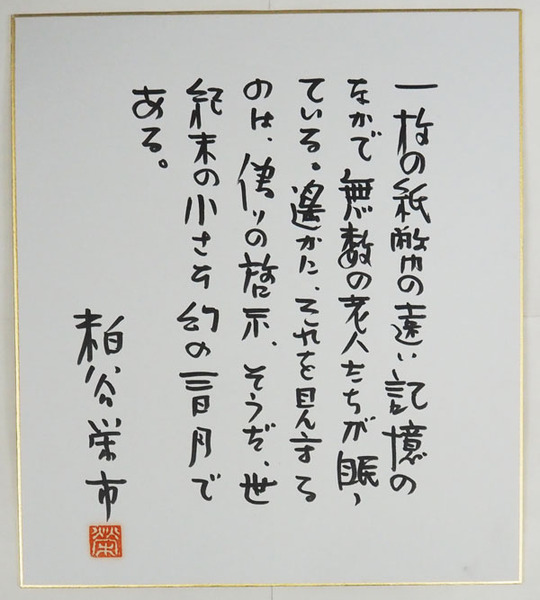 一枚の紙幣の遠い記憶の
なかで無数の老人たちが眠っ
ている。遙かに、それを見守る
のは、偽りの啓示、そうだ、世
紀末の小さな幻の三日月で
ある。
粕谷栄市
榮